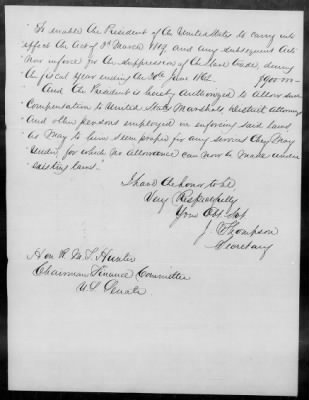 "To enable the President of the United States to carry into
effect the Act of 3d March 1819 and any subsequent Acts
now in force for the suppression of the Slave trade, during
the fiscal year ending the 30th June 1862
And the President is hereby authorized to allow such
Compensation to United States Marshals, District Attorneys
And other persons employed in enforcing said laws
as May to him seem proper for any services they May
render, for which no allowance can now be made under
existing laws."
I have the honor to be
Very Respectfully
Your Obt Svt
J. Thompson
Secretary
Hon R. M. T. Hunter
Chairman Finance Committee
U.S Senate